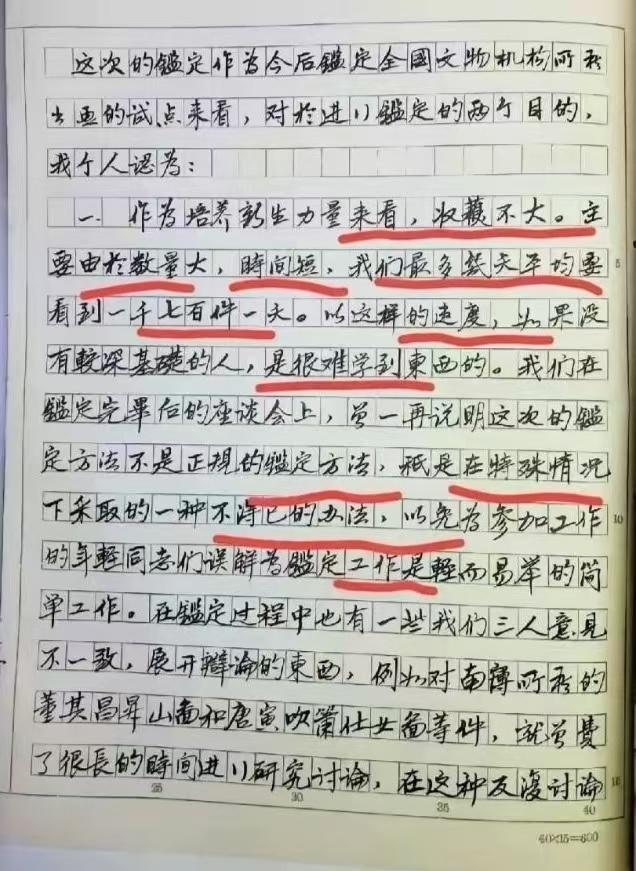 这次的鑑定作为今后鑑定全國文物机构所存
书画的试点来看，对於进行鑑定的两个目的，
我个人認为：
一．作为培养新生力量来看，收穫不大。主
要由於数量大，時间短，我们最多幾天平均要
看到一千七百件一天。以这样的速度，如果没
有較深基礎的人，是很难学到東西的。我们在
鑑定完畢后的座谈会上，曾一再说明这次的鑑
定方法不是正規的鑑定方法，祗是在特殊情况
下采取的一种不得已的办法，以免为参加工作
的年輕同志们误解为鑑定工作是輕而易举的简
单工作。在鑑定过程中也有一些我们三人意見
不一致，展开辯論的東西，例如对南博所存的
董其昌昇山畵和唐寅吹簫仕女畵等件，就曾費
了很長的時间进行研究讨論，在这种反復讨論
5
10
15
25
30
35
40
40×15=600